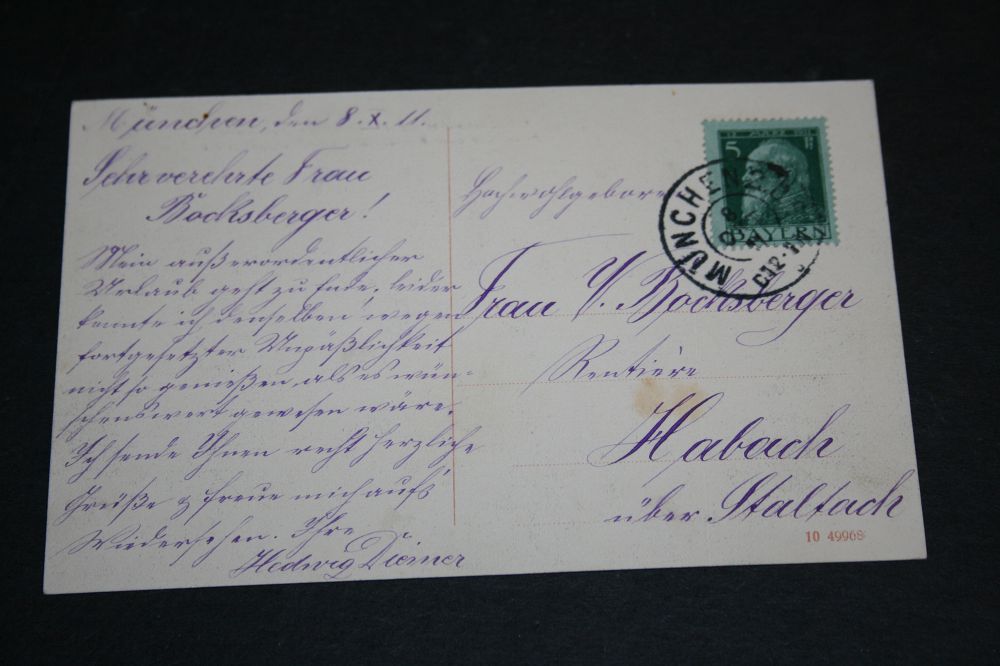 München, den 8.X.11.
Sehr verehrte Frau
Bocksberger!
Mein außerordentlicher
Urlaub geht zu Ende; leider
konnte ich denselben wegen
fortgesetzter Unpäßlichkeit
nicht so genießen, als es wün-
schenswert gewesen wäre.
Ich sende Ihnen recht herzliche
Grüße & freue mich auf's
Wiedersehen. Ihre
Hedwig Diemer
Hochwohlgeboren
Frau V. Bocksberger
Rentière
Habach
über Staltach
12 MÄRZ 1911
5
BAYERN
MÜNCHEN
10 49968